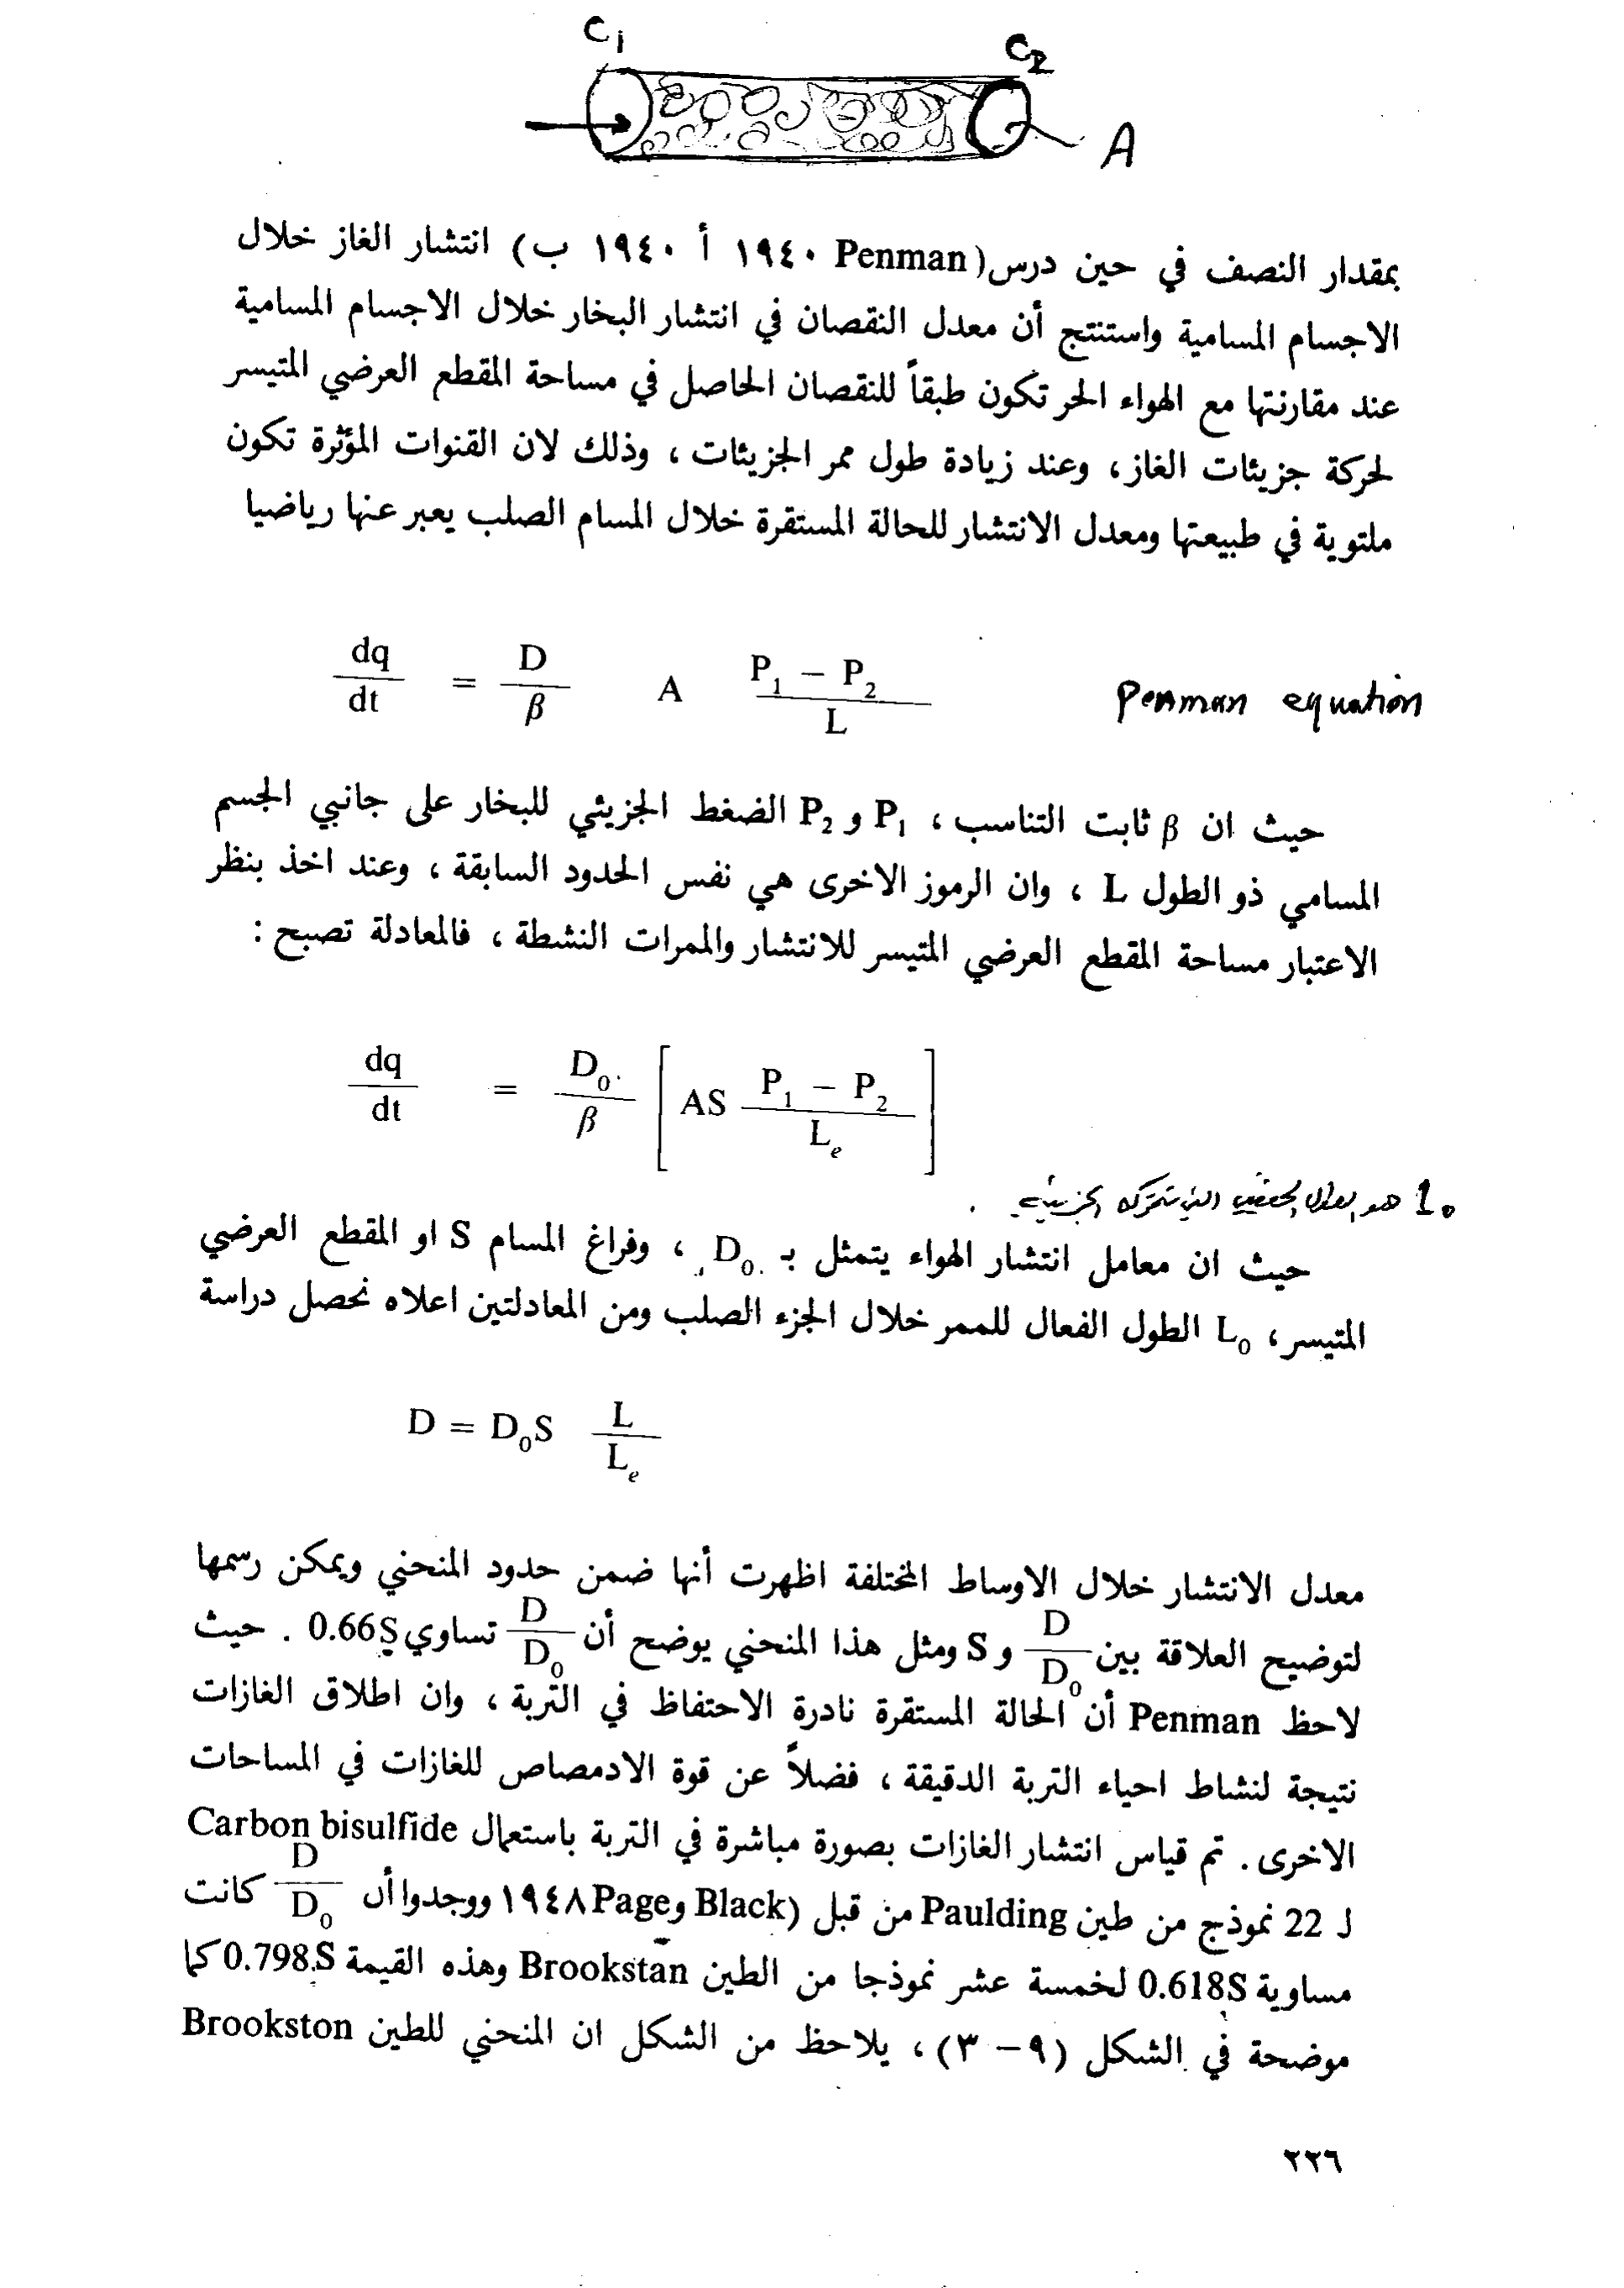 C1 C2
A
بمقدار النصف في حين درس (Penman ١٩٤٠ أ ١٩٤٠ ب) انتشار الغاز خلال
الاجسام المسامية واستنتج أن معدل النقصان في انتشار البخار خلال الاجسام المسامية
عند مقارنتها مع الهواء الحر تكون طبقاً للنقصان الحاصل في مساحة المقطع العرضي المتيسر
لحركة جزيئات الغاز، وعند زيادة طول ممر الجزيئات، وذلك لان القنوات المؤثرة تكون
ملتوية في طبيعتها ومعدل الانتشار للحالة المستقرة خلال المسام الصلب يعبر عنها رياضيا
dq/dt = D/β A (P₁ – P₂)/L Penman equation
حيث ان β ثابت التناسب، P₁ و P₂ الضغط الجزيئي للبخار على جانبي الجسم
المسامي ذو الطول L ، وان الرموز الاخرى هي نفس الحدود السابقة، وعند اخذ بنظر
الاعتبار مساحة المقطع العرضي المتيسر للانتشار والممرات النشطة، فالمعادلة تصبح :
dq/dt = D₀/β [ AS (P₁ – P₂)/Lₑ ]
هو الطول الحقيقي الذي تتحركه
حيث ان معامل انتشار الهواء يتمثل بـ D₀ ، وفراغ المسام S او المقطع العرضي
المتيسر، L₀ الطول الفعال للممر خلال الجزء الصلب ومن المعادلتين اعلاه نحصل دراسة
D = D₀S L/Lₑ
معدل الانتشار خلال الاوساط المختلفة اظهرت أنها ضمن حدود المنحني ويمكن رسمها
لتوضيح العلاقة بين D/D₀ و S ومثل هذا المنحني يوضح أن D/D₀ تساوي 0.66S . حيث
لاحظ Penman أن الحالة المستقرة نادرة الاحتفاظ في التربة، وان اطلاق الغازات
نتيجة لنشاط احياء التربة الدقيقة، فضلاً عن قوة الادمصاص للغازات في المساحات
الاخرى. تم قياس انتشار الغازات بصورة مباشرة في التربة باستعمال Carbon bisulfide
لـ 22 نموذج من طين Paulding من قبل (Black و Page ١٩٤٨ ووجدوا أن D/D₀ كانت
مساوية 0.618S لخمسة عشر نموذجا من الطين Brookstan وهذه القيمة 0.798S كما
موضحة في الشكل (٩ – ٣)، يلاحظ من الشكل ان المنحني للطين Brookston
٢٢٦